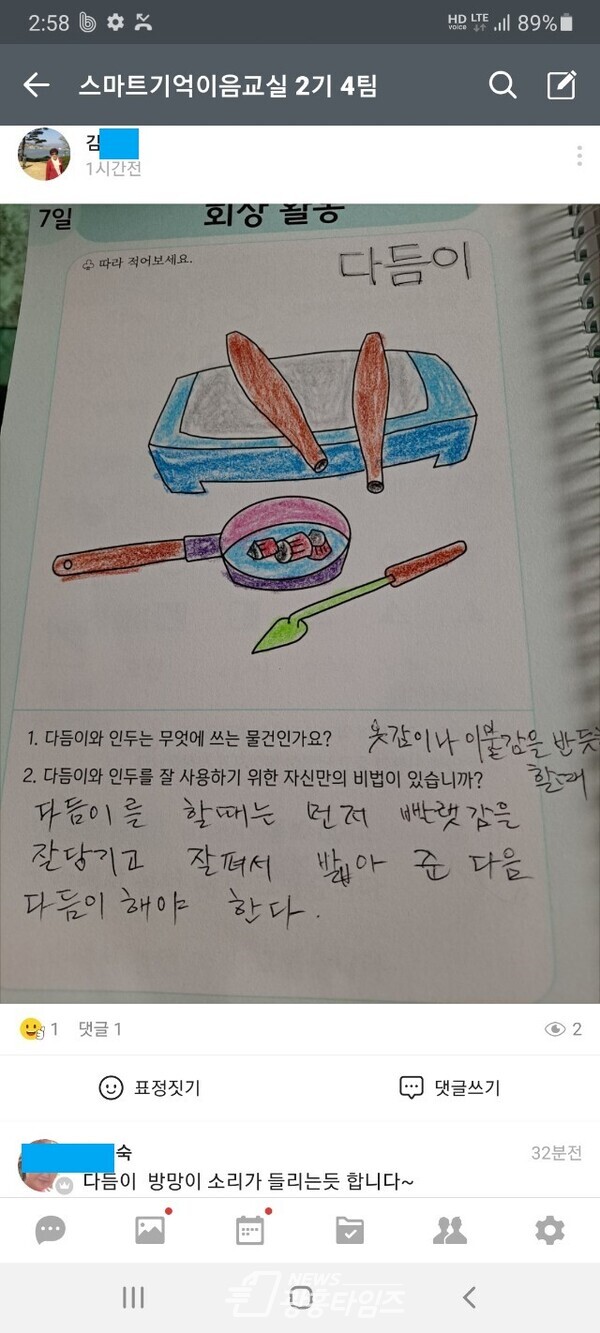 2:58
HD voice LTE 89%
스마트기억이음교실 2기 4팀
김
1시간전
7일
회상 활동
따라 적어보세요.
다듬이
1. 다듬이와 인두는 무엇에 쓰는 물건인가요? 옷감이나 이불감을 반듯하게
2. 다듬이와 인두를 잘 사용하기 위한 자신만의 비법이 있습니까? 할때
다듬이를 할때는 먼저 빤랫감을
잘당기고 잘펴서 발밟아 준 다음
다듬이 해야 한다.
1 댓글 1 2
표정짓기 댓글쓰기
숙
32분전
다듬이 방망이 소리가 들리는듯 합니다~
NEWS
광흥타임즈